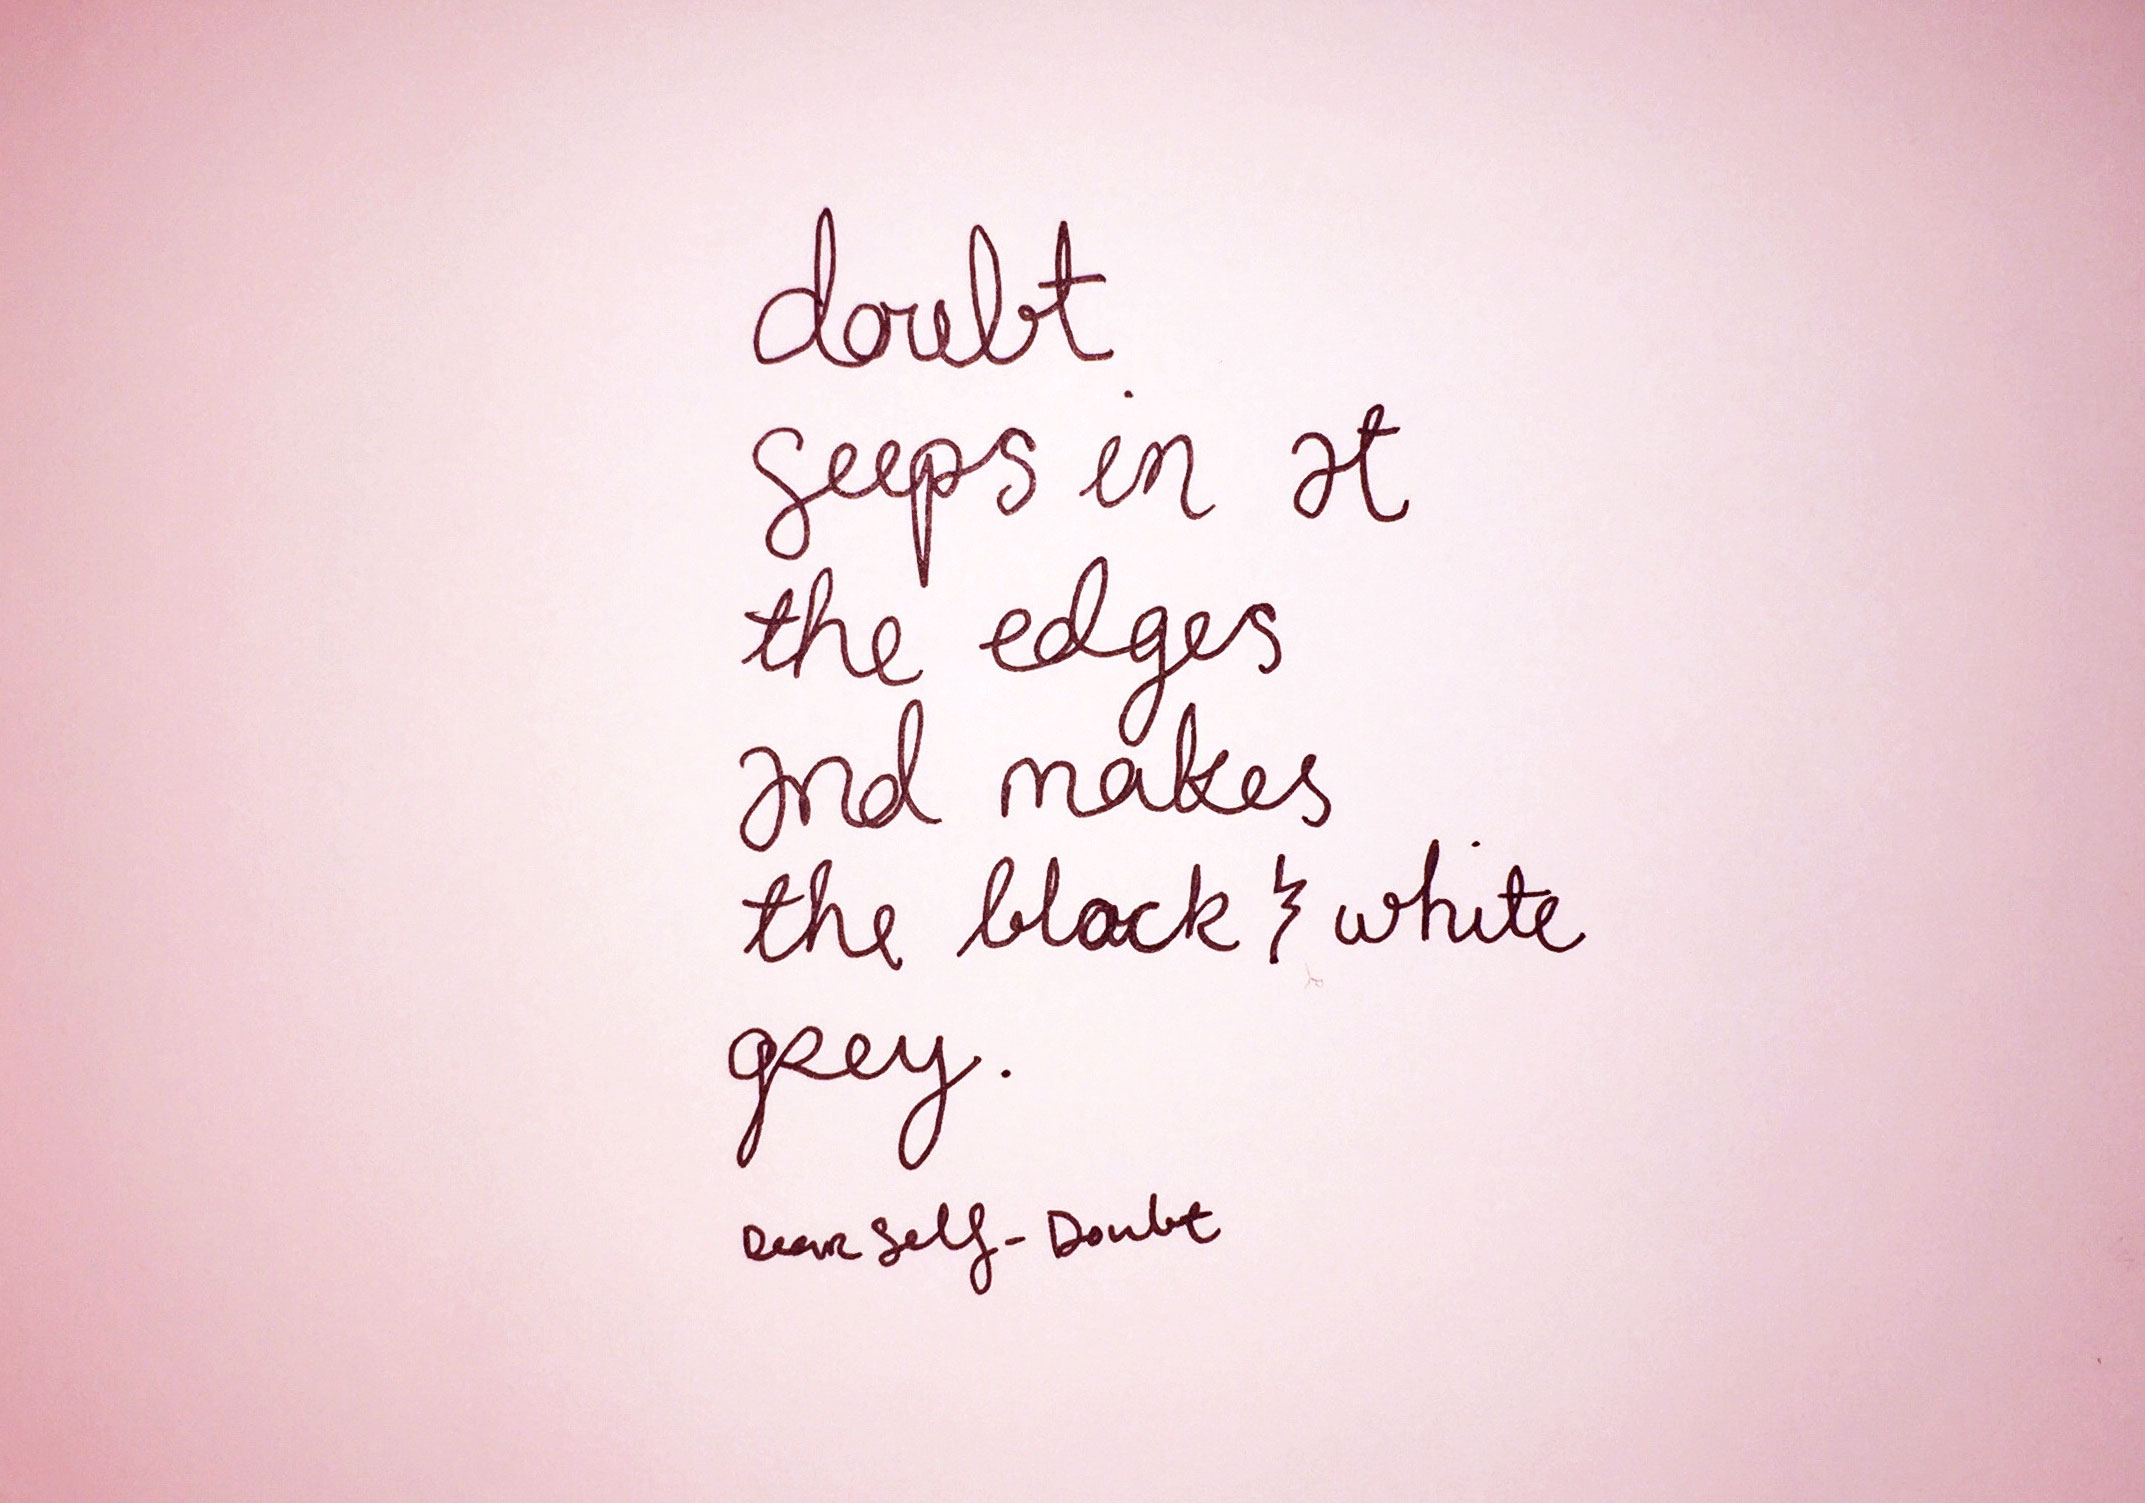 doubt
seeps in at
the edges
and makes
the black & white
grey.
Dear Self-Doubt